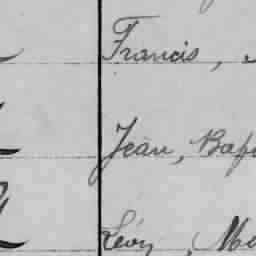 Francis,
Jean, Bap
Léon, Ma